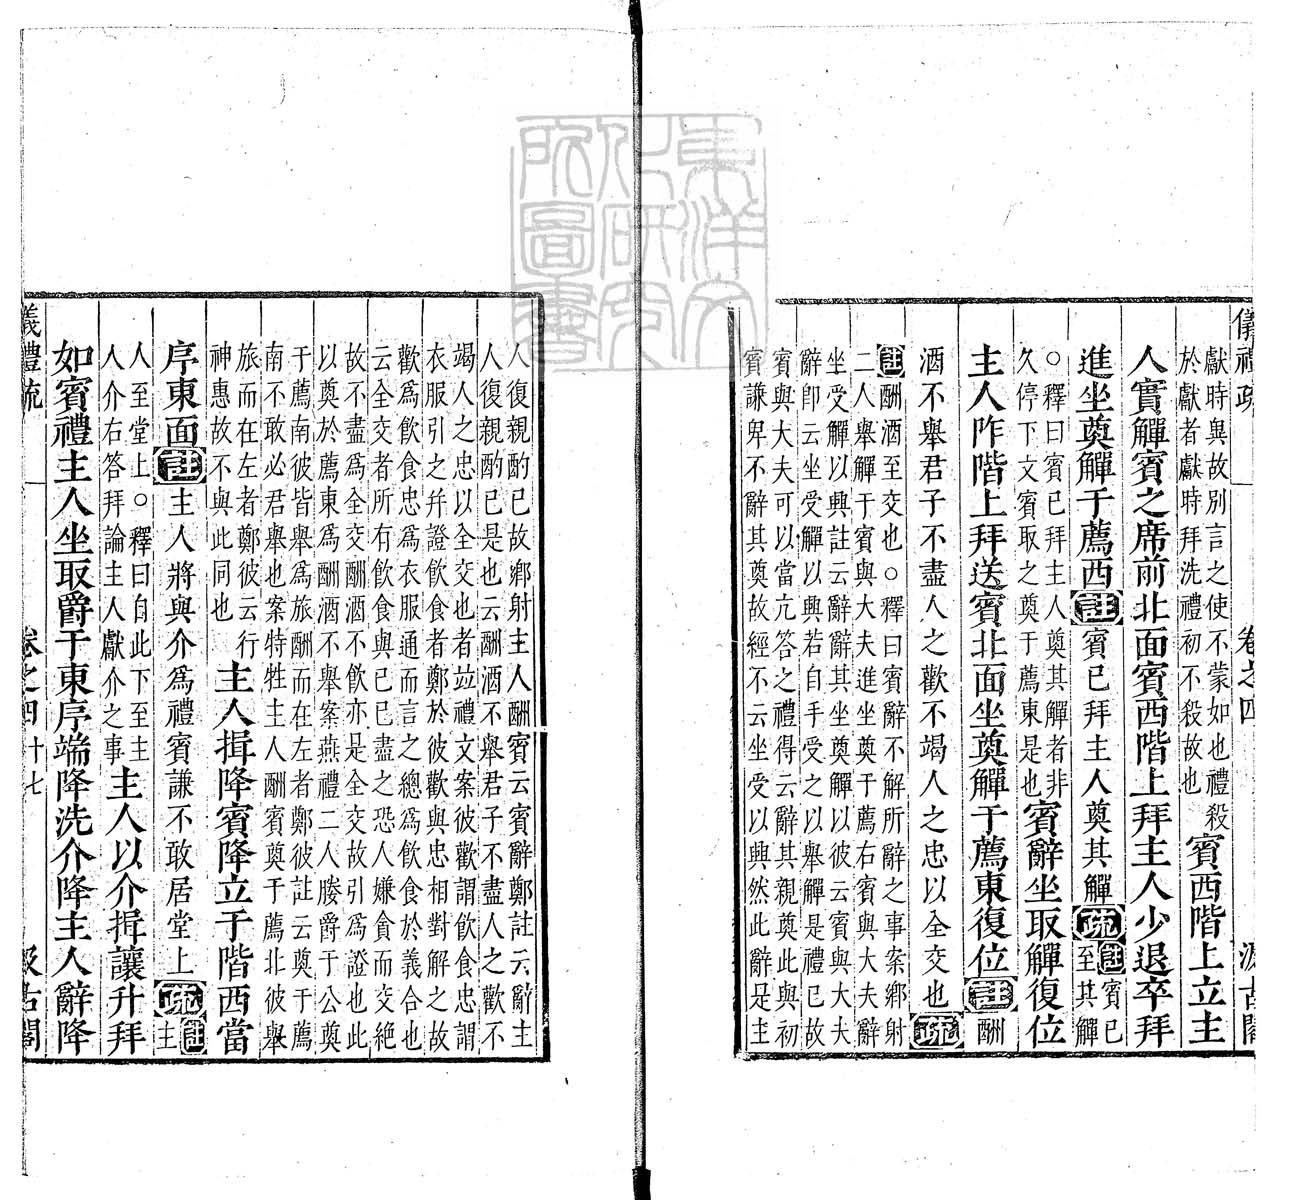 儀禮疏 卷之四 汲古閣
獻時與故別言之使不蒙如也禮殺
於獻者獻時拜洗禮初不殺故也 賓西階上立主
人實觶賓之席前北面賓西階上拜主人少退卒拜
進坐奠觶于薦西註賓已拜主人奠其觶疏註賓已
至其觶
○釋曰賓已拜主人奠其觶者非
久停下文賓取之奠于薦東是也 賓辭坐取觶復位
主人阼階上拜送賓北面坐奠觶于薦東復位註酬
酒不舉君子不盡人之歡不竭人之忠以全交也疏
註酬酒至交也○釋曰賓辭不解所辭之事案鄉射
二人舉觶于賓與大夫進坐奠于薦右賓與大夫辭
坐受觶以興註云辭辭其坐奠觶以彼云賓與大夫
辭卽云坐受觶以興若自手受之以舉觶是禮已故
賓與大夫可以當亢答之禮得云辭其親奠此與初
賓謙卑不辭其奠故經不云坐受以興然此辭是主
人復親酌已故鄉射主人酬賓云賓辭鄭註云辭主
人復親酌已是也云酬酒不舉君子不盡人之歡不
竭人之忠以全交也者竝禮文案彼歡謂飲食忠謂
衣服引之幷證飲食者鄭於彼歡與忠相對解之故
歡爲飲食忠爲衣服通而言之總爲飲食於義合也
云全交者所有飲食與已已盡之恐人嫌貪而交絕
故不盡爲全交酬酒不飲亦是全交故引爲證也此
以奠於薦東爲酬酒不舉案燕禮二人媵爵于公奠
于薦南彼皆舉爲旅酬而在左者鄭彼註云奠于薦
南不敢必君舉也案特牲主人酬賓奠于薦北彼舉
旅而在左者鄭彼云行
神惠故不與此同也 主人揖降賓降立于階西當
序東面註主人將與介爲禮賓謙不敢居堂上疏註主
人至堂上○釋曰自此下至主
人介右答拜論主人獻介之事 主人以介揖讓升拜
如賓禮主人坐取爵于東序端降洗介降主人辭降
儀禮疏 卷之四 十七 汲古閣